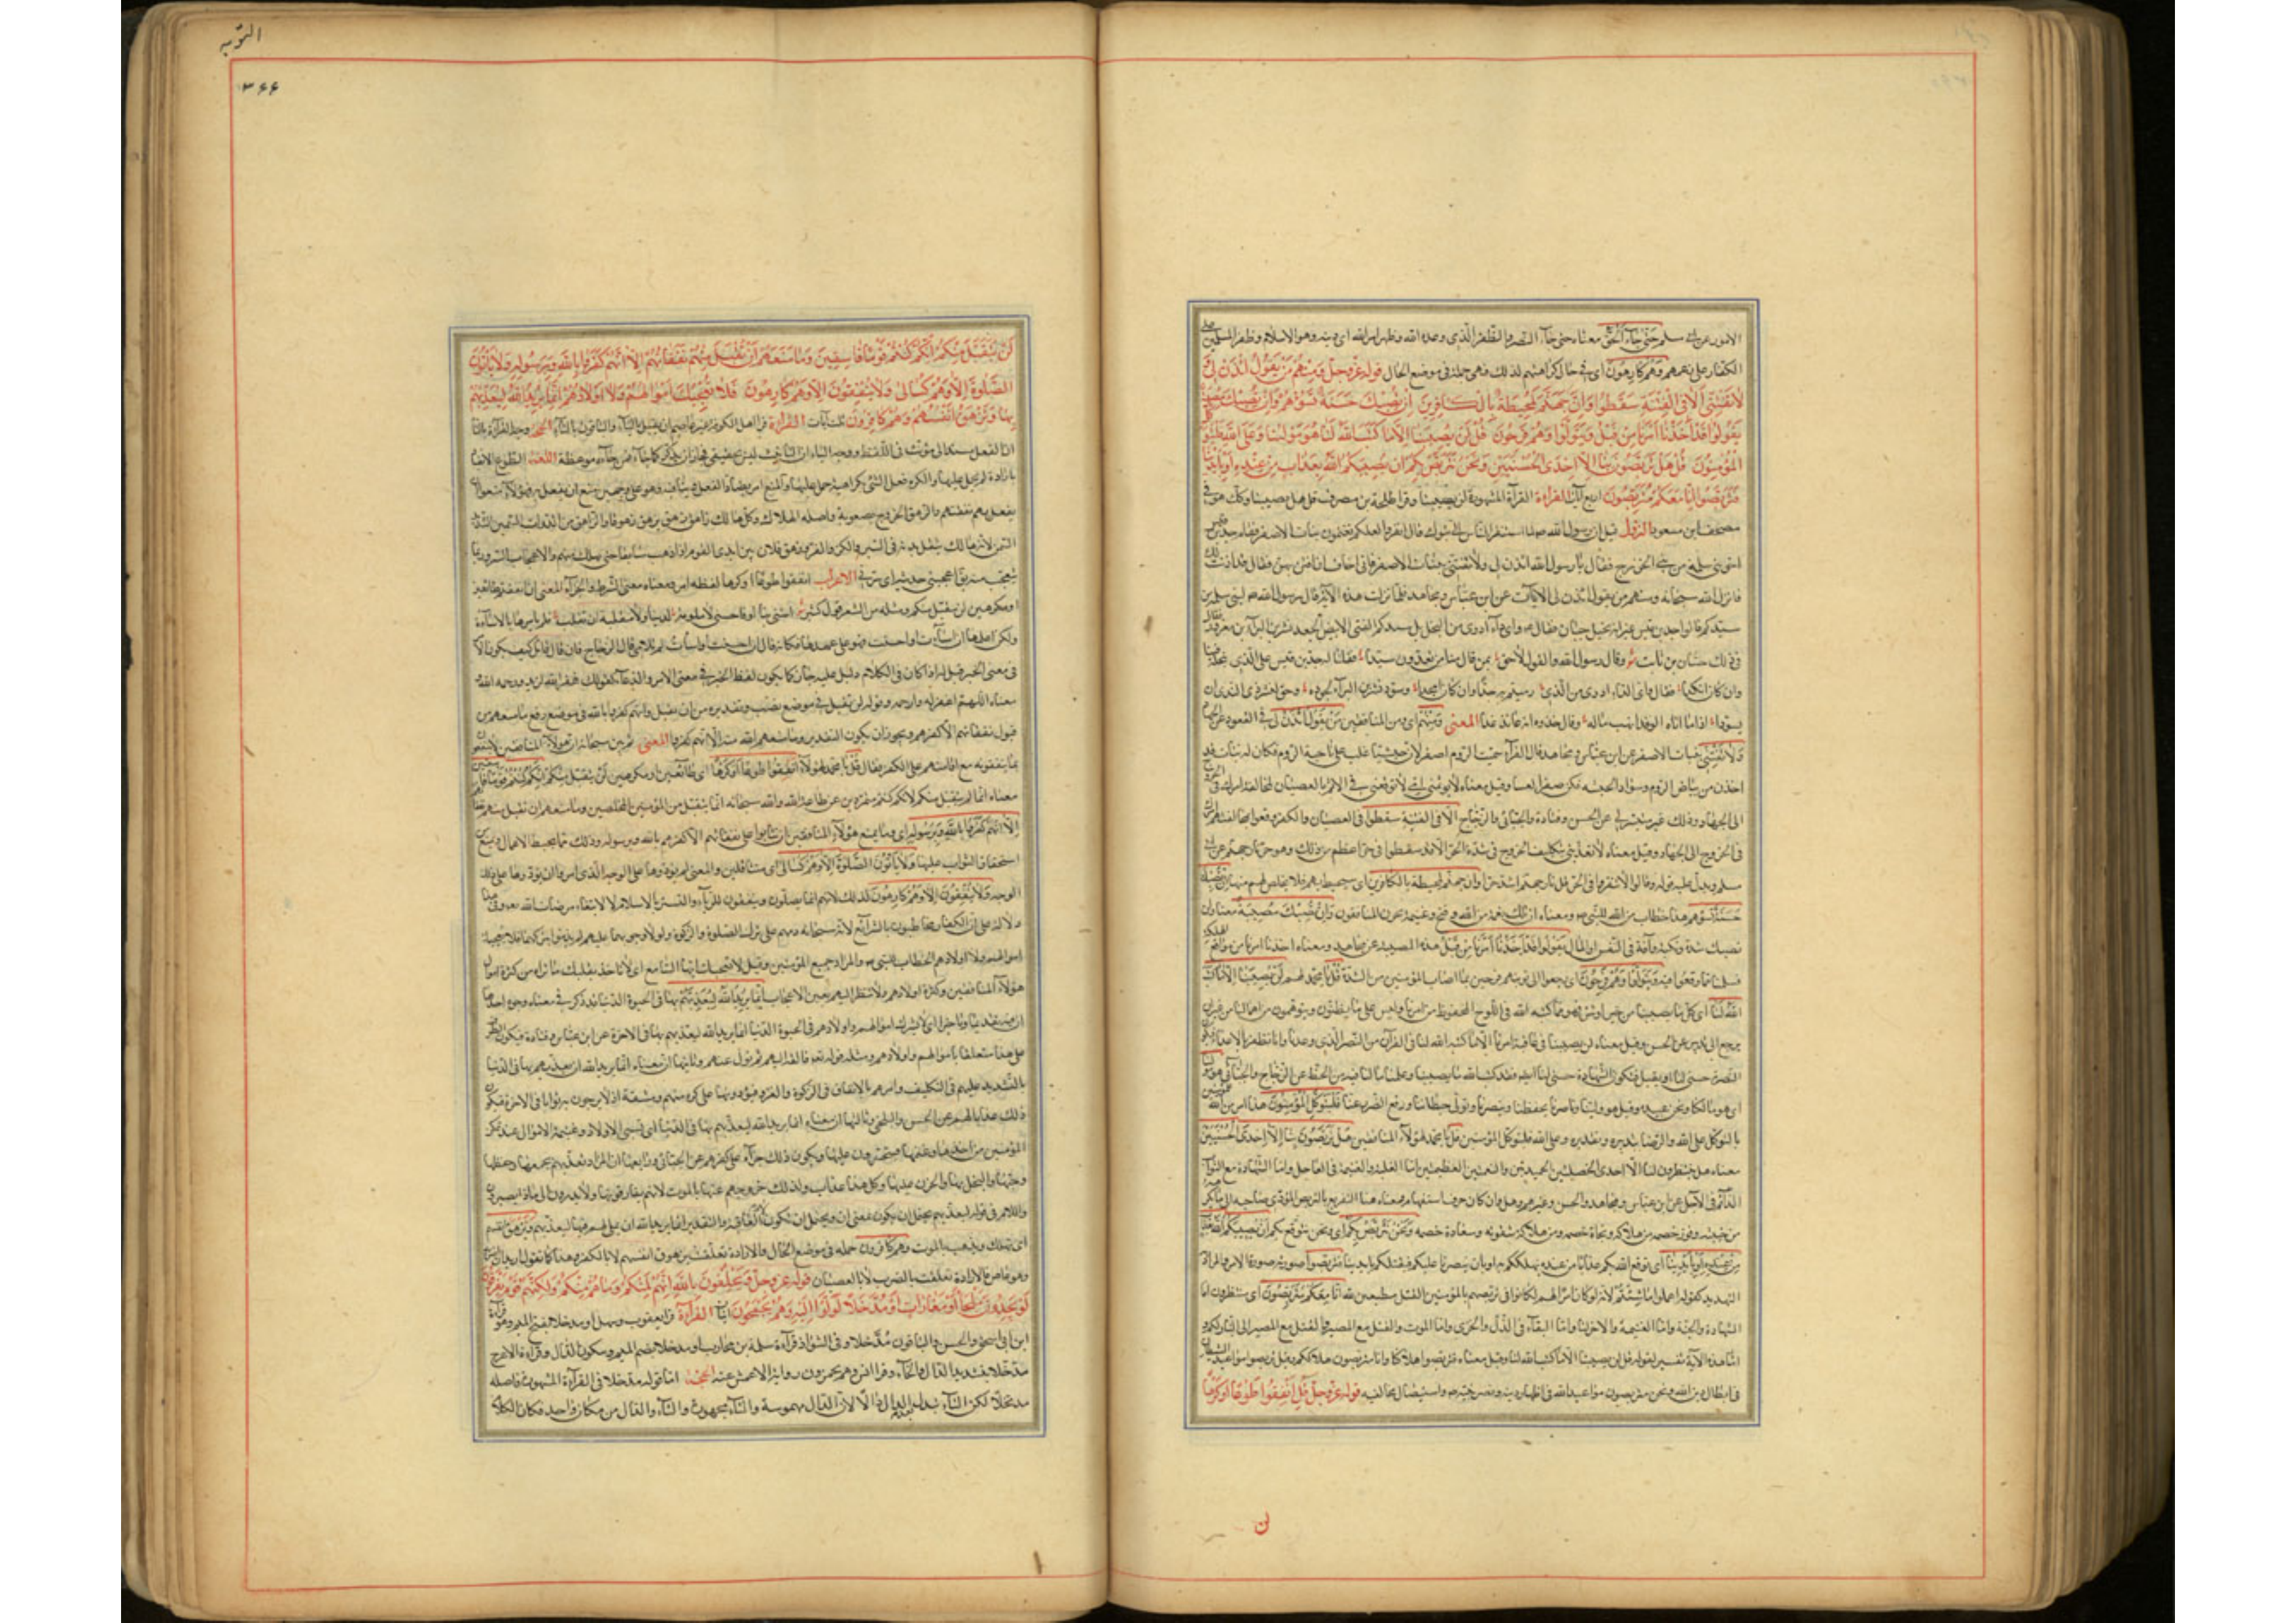 الامور عن بنى سلم حتى جاء الحق معناه حتى جاء النصر والظفر الذى وعده الله وظهر امر الله اى دينه وهو الاسلام وظفر المسلمين
الكفار على رغمهم وهم كارهون اى فى حال كراهتهم لذلك فهى جملة فى موضع الحال قوله عز وجل ومنهم من يقول ائذن لى
ولا تفتنى الا فى الفتنة سقطوا وان جهنم لمحيطة بالكافرين ان تصبك حسنة تسؤهم وان تصبك مصيبة
يقولوا قد اخذنا امرنا من قبل ويتولوا وهم فرحون قل لن يصيبنا الا ما كتب الله لنا هو مولينا وعلى الله فليتوكل
المؤمنون قل هل تربصون بنا الا احدى الحسنيين ونحن نتربص بكم ان يصيبكم الله بعذاب من عنده او بايدينا
فتربصوا انا معكم متربصون اربع آيات القراءة القرآءة المشهورة لن يصيبنا وقرا طلحة بن مصرف قل هل يصيبنا وكذلك هو فى
مصحف ابن مسعود النزول قيل ان رسول الله لما استنفر الناس الى تبوك قال انفروا لعلكم تغنمون بنات الاصفر فقام جد بن قيس
اخو بنى سلمة من بنى الخزرج فقال يا رسول الله ائذن لى ولا تفتنى ببنات الاصفر فانى اخاف ان افتتن بهن فقال قد اذنت لك
فانزل الله سبحانه ومنهم من يقول ائذن لى الآيات عن ابن عباس ومجاهد فلما نزلت هذه الآية قال رسول الله لبنى سلمة من
سيدكم قالوا جد بن قيس غير انه بخيل جبان فقال واى داء ادوى من البخل بل سيدكم الفتى الابيض الجعد بشر بن البراء بن معرور فقال
فى ذلك حسان بن ثابت وقال رسول الله والقول لاحق بمن قال منا من تعدون سيدا فقلنا له جد بن قيس على الذى نبخله فينا
وان كان انكدا فقال واى الداء ادوى من الذى رميتم به جدا وان كان امجدا وسود بشر بن البراء لجوده وحق لبشر ذى الندى ان
يسودا اذا ما اتاه الوفد انهب ماله وقال خذوه انه عائد غدا المعنى ومنهم اى ومن المنافقين من يقول ائذن لى فى القعود عن الجهاد
ولا تفتنى ببنات الاصفر عن ابن عباس ومجاهد قال الفرآء سمى الروم اصفر لان حبشيا غلب على ناحية الروم فكان له بنات قد
اخذن من بياض الروم وسواد الحبشة فكن صفرا لعسا وقيل معناه لا تؤثمنى اى لا توقعنى فى الاثم بالعصيان لمخالفة امرك فى الخروج
الى الجهاد وذلك غير متيسر لى عن الحسن وقتادة والجبائى والزجاج الا فى الفتنة سقطوا اى فى العصيان والكفر وقعوا بمخالفتهم امرك
فى الخروج الى الجهاد وقيل معناه لا تعذبنى بتكليف الخروج فى شدة الحر الا قد سقطوا فى حر اعظم من ذلك وهو حر نار جهنم عن ابى
مسلم ويدل عليه قوله وقالوا لا تنفروا فى الحر قل نار جهنم اشد حرا وان جهنم لمحيطة بالكافرين اى ستحيط بهم فلا مخلص لهم منها ان تصبك
حسنة تسؤهم هذا خطاب من الله للنبى ومعناه ان تنلك نعمة من الله وفتح وغنيمة يحزن المنافقون وان تصبك مصيبة معناه وان
تصبك شدة ونكبة وآفة فى النفس او المال يقولوا قد اخذنا امرنا من قبل هذه المصيبة عن مجاهد ومعناه اخذنا امرنا من مواضع الهلكة
فسلمنا مما وقعوا فيه ويتولوا وهم فرحون اى رجعوا الى بيوتهم فرحين بما اصاب المؤمنين من الشدة قل يا محمد لهم لن يصيبنا الا ما كتب
الله لنا اى كل ما يصيبنا من خير او شر فهو مما كتبه الله فى اللوح المحفوظ من امرنا وليس على ما يظنون ويتوهمون من اهمالنا من غير ان
يرجع الى تدبير عن الحسن وقيل معناه لن يصيبنا فى عاقبة امرنا الا ما كتب الله لنا فى القرآن من النصر الذى وعدنا وانا نظفر بالاعداء فتكون
النصرة حسنى لنا او نقتل فتكون الشهادة حسنى لنا ايضا فقد كتب الله ما يصيبنا وعلمنا ما لنا فيه من الحظ عن الزجاج والجبائى هو مولينا
اى هو مالكنا ونحن عبيده وقيل هو ولينا وناصرنا يحفظنا وينصرنا ويتولى حياطتنا ودفع الضرر عنا فليتوكل المؤمنون هذا امر من الله
بالتوكل على الله والرضا بتدبيره وتقديره وعلى الله فليتوكل المؤمنون قل يا محمد لهؤلآء المنافقين هل تربصون بنا الا احدى الحسنيين
معناه هل تنتظرون لنا الا احدى الخصلتين الحميدتين والنعمتين العظيمتين اما الغلبة والغنيمة فى العاجل واما الشهادة مع الثواب
الدآئم فى الآجل عن ابن عباس ومجاهد والحسن وغيرهم وهل وان كان حرف استفهام فمعناه هنا التقريع بالتربص المؤدى صاحبه الى ما يكره
من خيبته وفوز خصمه من هلاكه ونجاة خصمه ومن هلاكه بشقوته وسعادة خصمه ونحن نتربص بكم اى ونحن نتوقع بكم ان يصيبكم الله بعذاب
من عنده او بايدينا اى توقع الله بكم عذابا من عنده يهلككم به او بان ينصرنا عليكم فيقتلكم بايدينا فتربصوا صورته صورة الامر والمراد
التهديد كقوله اعملوا ما شئتم لانه لو كان امرا لهم لكانوا فى تربصهم بالمؤمنين القتل مطيعين لله انا معكم متربصون اى منتظرون اما
الشهادة والجنة واما الغنيمة والاجر لنا واما البقآء فى الذل والخزى واما الموت والقتل مع المصير والقتل مع المصير الى النار لكم و
انما هذه الآية تفسير لقوله قل لن يصيبنا الا ما كتب الله لنا وقيل معناه فتربصوا هلاكنا وانا متربصون هلاككم وقيل تربصوا مواعيد الشيطان
فى ابطال دين الله ونحن متربصون مواعيد الله فى اظهار دينه ونصر نبيه واستيصال مخالفيه قوله عز وجل قل انفقوا طوعا او كرها
لن
التوبه
٣٦٦
لن يتقبل منكم انكم كنتم قوما فاسقين وما منعهم ان تقبل منهم نفقاتهم الا انهم كفروا بالله وبرسوله ولا ياتون
الصلوة الا وهم كسالى ولا ينفقون الا وهم كارهون فلا تعجبك اموالهم ولا اولادهم انما يريد الله ليعذبهم
بها وتزهق انفسهم وهم كافرون ثلث آيات القراءة قرا اهل الكوفة غير عاصم ان يقبل باليآء والباقون بالتآء الحجة وجه القرآءة بالتآء
ان الفعل يسند الى مؤنث فى اللفظ ووجه الياء ان التانيث ليس بحقيقى فجاز ان يذكر كما جاء فمن جآءه موعظة اللغة الطوع الانقياد
بارادة لمن عمل عليها والكره فعل الشئ بكراهية حمل عليها والمنع امر يضاد الفعل وينافيه وهو على وجهين
والزهق الخروج بصعوبة واصله الهلاك وكل هالك زاهق زهق يزهق زهوقا والزاهق من الدواب السمين الشديد
السمن لانه هالك يثقل بدنه فى السير والكر والفر وزهق فلان بين ايدى القوم اذا ذهب سابقا حتى يهلك منهم والاعجاب السرور بما
يتعجب منه يقال اعجبنى حديثه اى سرنى الاعراب انفقوا طوعا او كرها لفظه امر ومعناه معنى الشرط والجزآء المعنى ان انفقتم طائعين
او مكرهين لن يتقبل منكم ومثله من الشعر قول كثير اسيئى بنا او احسنى لا ملومة لدينا ولا مقلية ان تقلت فلم يامرها بالاسآءة
ولكن اعلمها ان اسآءت او احسنت فهو على عهدها فكانه قال ان احسنت او اسات لم تلامى قال الزجاج فان قال قائل كيف يكون الامر
فى معنى الخبر قيل له اذا كان فى الكلام دليل عليه جاز كما يكون لفظ الخبر فى معنى الامر والدعآء كقولك غفر الله لزيد ورحمه الله
معناه اللهم اغفر له وارحمه وقوله ان تقبل فى موضع نصب وتقديره من ان تقبل وانهم كفروا بالله فى موضع رفع ما منعهم من
قبول نفقاتهم الا كفرهم ويجوز ان يكون التقدير وما منعهم الله منه الا انهم كفروا المعنى ثم بين سبحانه ان هؤلآء المنافقين لا ينتفعون
بما ينفقونه مع اقامتهم على الكفر فقال قل يا محمد لهؤلآء انفقوا طوعا او كرها اى طائعين او مكرهين لن يتقبل منكم انكم كنتم قوما فاسقين
معناه انما لم يتقبل منكم لانكم كنتم متمردين عن طاعة الله والله سبحانه انما يتقبل من المؤمنين المخلصين وما منعهم ان تقبل منهم نفقاتهم
الا انهم كفروا بالله وبرسوله اى وما يمنع هؤلآء المنافقين ان يثابوا على نفقاتهم الا كفرهم بالله وبرسوله وذلك مما يحبط الاعمال ويمنع
استحقاق الثواب عليها ولا ياتون الصلوة الا وهم كسالى اى متثاقلين والمعنى لم يؤدوها على الوجه الذى امروا ان يؤدوها على ذلك
الوجه ولا ينفقون الا وهم كارهون لذلك لانهم انما يصلون وينفقون للريآء والتستر بالاسلام لا لابتغاء مرضات الله وفى هذا
دلالة على ان الكفار مخاطبون بالشرآئع لانه سبحانه ذمهم على ترك الصلوة والزكوة ولولا وجوبهما عليهم لم يذموا بتركهما فلا تعجبك
اموالهم ولا اولادهم الخطاب للنبى والمراد جميع المؤمنين وقيل لا تعجبك ايها السامع اى لا تاخذ بقلبك ما تراه من كثرة اموال
هؤلآء المنافقين وكثرة اولادهم ولا تنظر اليهم بعين الاعجاب انما يريد الله ليعذبهم بها فى الحيوة الدنيا قد ذكر فى معناه وجوه احدها
ان فيه تقديما وتاخيرا اى لا يسرك اموالهم واولادهم فى الحيوة الدنيا انما يريد الله ليعذبهم بها فى الاخرة عن ابن عباس وقتادة فيكون الظرف
على هذا متعلقا باموالهم واولادهم ومثله قوله فالقه اليهم ثم تول عنهم وثانيها ان معناه انما يريد الله ان يعذبهم بها فى الدنيا
بالتشديد عليهم فى التكليف وامرهم بالانفاق فى الزكوة والغزو فيؤدونها على كره منهم ومشقة اذ لا يرجون به ثوابا فى الاخرة فيكون
ذلك عذابا لهم عن الحسن والبلخى وثالثها ان معناه انما يريد الله ليعذبهم بها فى الدنيا اى بسبى الاولاد وغنيمة الاموال عند تمكن
المؤمنين من اخذها وغنمها فيتحسرون عليها ويكون ذلك جزآء على كفرهم عن الجبائى ورابعها ان المراد يعذبهم بجمعها وحفظها
وحبها والبخل بها والحزن عليها وكل هذا عذاب وكذلك خروجهم عنها بالموت لانهم يفارقونها ولا يدرون الى ماذا يصيرون
واللام فى قوله ليعذبهم يحتمل ان يكون بمعنى ان ويحتمل ان تكون لام العاقبة والتقدير انما يريد الله ان يملى لهم فيها ليعذبهم وتزهق انفسهم
اى تهلك وتذهب بالموت وهم كافرون جملة فى موضع الحال والارادة تعلقت بزهوق انفسهم لا بالكفر وهذا كما تقول اريد ان اضربه
وهو عاص فالارادة تعلقت بالضرب لا بالعصيان قوله عز وجل ويحلفون بالله انهم لمنكم وما هم منكم ولكنهم قوم يفرقون
لو يجدون ملجأ او مغارات او مدخلا لولوا اليه وهم يجمحون آيتان القرآءة قرا يعقوب وسهل او مدخلا بفتح الميم وهو قرآءة
ابن ابى اسحق والحسن والباقون مدخلا وفى الشواذ قرآءة مسلمة بن محارب او مدخلا بضم الميم وسكون الدال وقرآءة الاعرج
مدخلا بتشديد الدال والخآء وقرا انس وهم يجمزون رواية الاعمش عنه الحجة اما قوله مدخلا فى القرآءة المشهورة فاصله
مدتخلا لكن التآء تبدل بعد الدال دالا لان الدال مهموسة والتآء مجهورة والتآء والدال من مكان واحد فكان الكلام